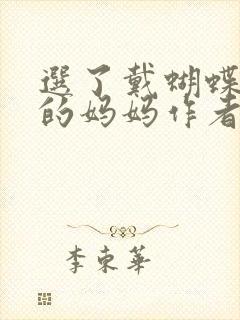 選了戴蝴蝶
的妈妈作者
李東華